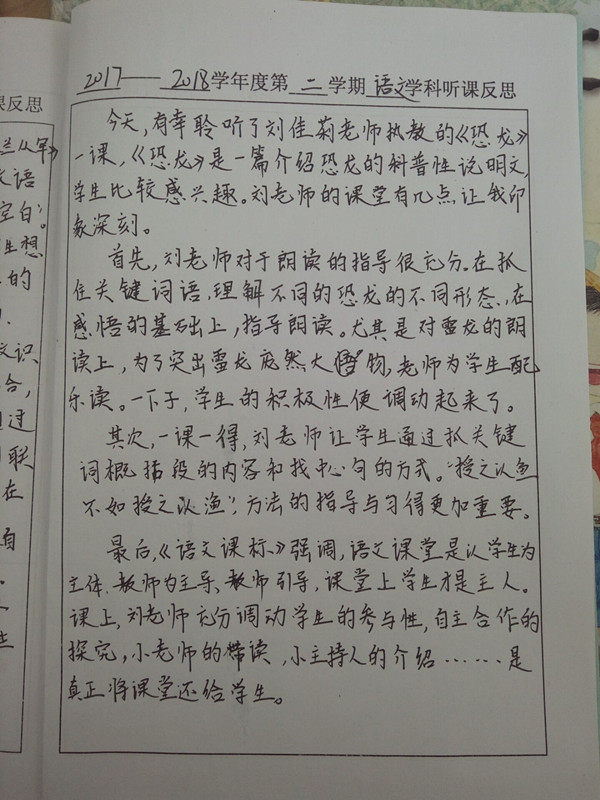 课反思
兰从军》
文语
空白"。
生想
的
文识
合,
过
联
在
2017——2018学年度第 二 学期 语文学科听课反思
今天,有幸聆听了刘佳菊老师执教的《恐龙》
一课,《恐龙》是一篇介绍恐龙的科普性说明文,
学生比较感兴趣。刘老师的课堂有几点让我印
象深刻。
首先,刘老师对于朗读的指导很充分。在抓
住关键词语,理解不同的恐龙的不同形态,在
感悟的基础上,指导朗读。尤其是对雷龙的朗
读上,为了突出雷龙庞然大物,老师为学生配
乐读。一下子,学生的积极性便调动起来了。
其次,一课一得,刘老师让学生通过抓关键
词概括段的内容和找中心句的方式。"授之以鱼
不如授之以渔",方法的指导与习得更加重要。
最后,《语文课标》强调,语文课堂是以学生为
主体,教师为主导、教师引导,课堂上学生才是主人。
课上,刘老师充分调动学生的参与性,自主合作的
探究,小老师的带读,小主持人的介绍……是
真正将课堂还给学生。